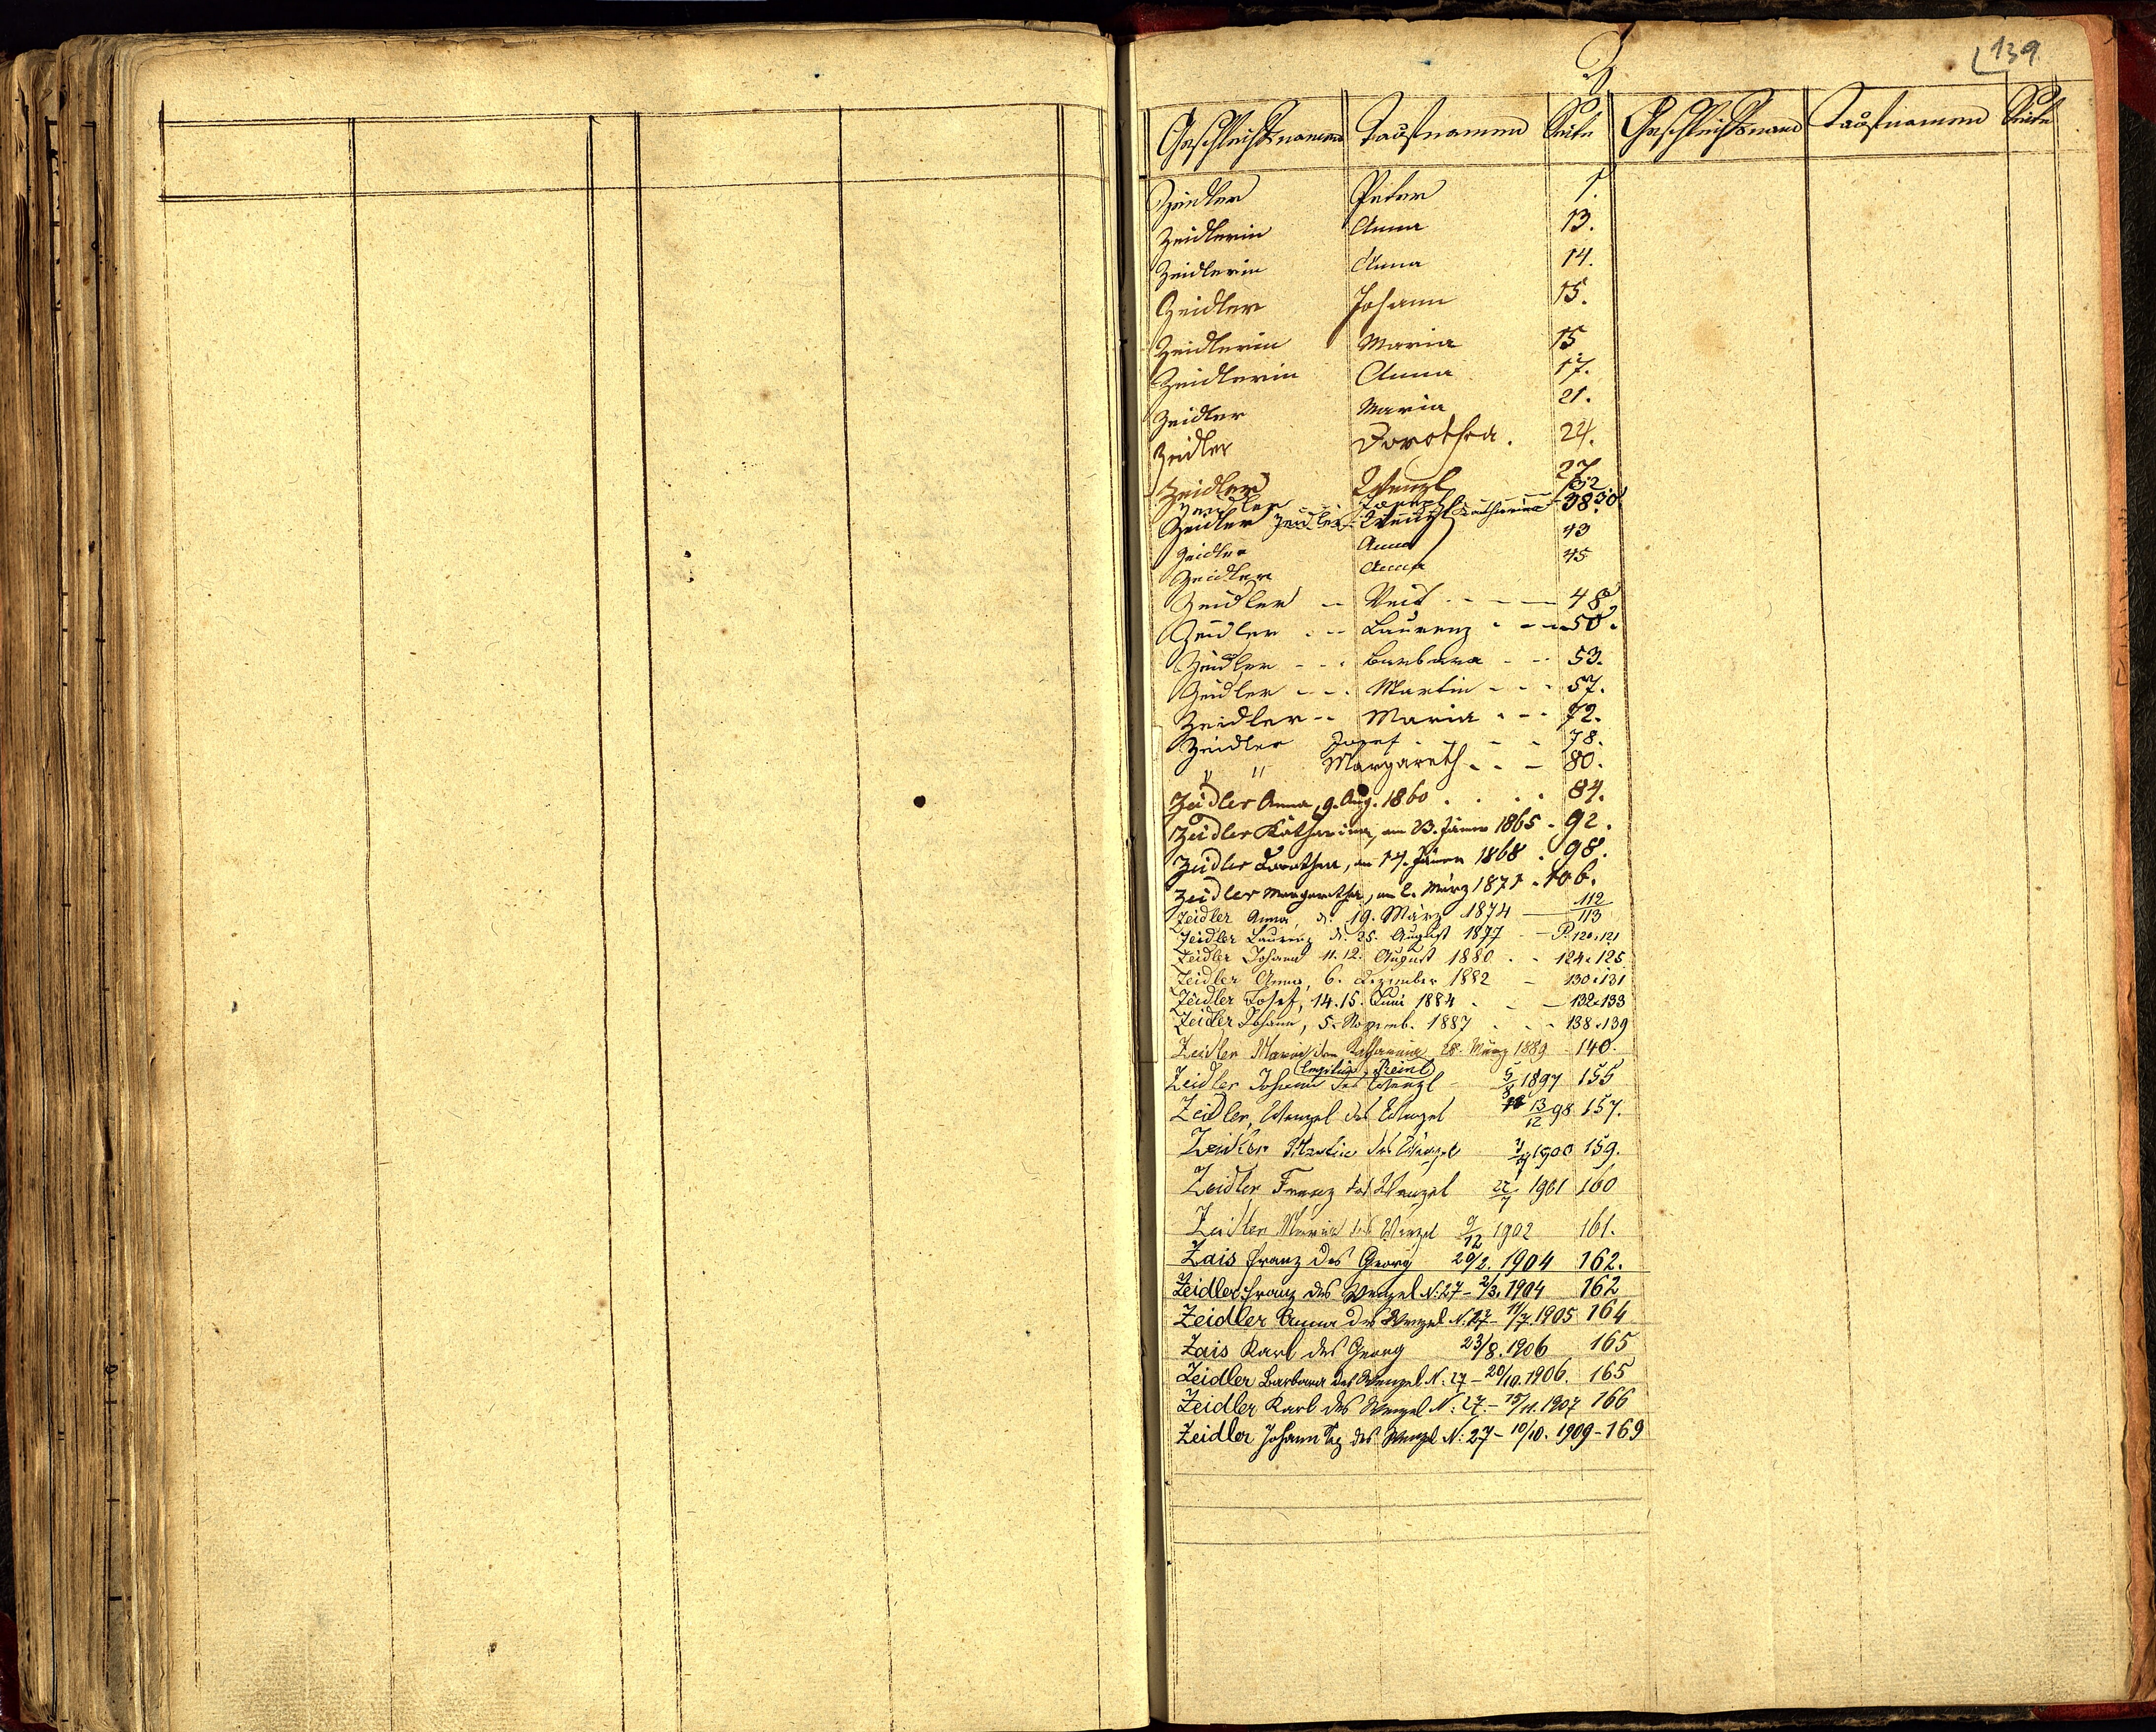 139
Z
Geschlechtsnamen Taufnamen Seite Geschlechtsnamen Taufnamen Seite
Zeidler Peter 1.
Zeidlerin Anna 13.
Zeidlerin Anna 14.
Zeidler Johann 15.
Zeidlerin Maria 15
Zeidlerin Anna 17.
Zeidler Maria 21.
Zeidler Dorothea. 24.
Zeidler Wenzl 27
Zeidler Joseph 32
Zeidler Zeidler Wenzl Katharina 38.30
Zeidler Anna 43
Zeidler Anna 45
Zeidler -- Veit - - - 48
Zeidler - - Laurenz - - - 50.
Zeidler - - - Barbara - - 53.
Zeidler - - - Martin - - - 57.
Zeidler - - Maria - - - 72.
Zeidler Josef - - - 78.
" " Margareth - - - 80.
Zeidler Anna, 9. Aug. 1860 . . . . 84.
Zeidler Katharina, am 23. Jäner 1865 - 92.
Zeidler Dorothea, am 14. Jäner 1868 . 98.
Zeidler Margaretha, am 2. März 1871 . 106.
Zeidler Anna, d. 19. März 1874 — 112/113
Zeidler Laurenz d. 25. August 1877 — P. 120.121
Zeidler Johann 11.12. August 1880 - - 124.125
Zeidler Anna, 6. Dezember 1882 - 130.131
Zeidler Josef, 14.15. Juni 1884 - - — 132.133
Zeidler Johann, 5. Novemb. 1887 - - - 138.139
Zeidler Maria der Katharina 28. März 1889 - 140.
legitim. Reinl
Zeidler Johann des Wenzl - 5/8 1897 155
Zeidler, Wenzel des Wenzel 13/12 98 157.
Zeidler Martin des Wenzel 1900 159.
Zeidler Franz des Wenzel 22/7 1901 160
Zeidler Maria des Wenzel 9/12 1902 161.
Zais Franz des Georg 20/2. 1904 162.
Zeidler Franz des Wenzel N. 27 - 2/3. 1904 162
Zeidler Anna des Wenzel N. 27 - 11/7. 1905 164
Zais Karl des Georg 23/8. 1906 165
Zeidler Barbara des Wenzel N: 27 - 20/10. 1906. 165
Zeidler Karl des Wenzel N: 27. - 15/11. 1907 166
Zeidler Johann des Wenzel N: 27 - 10/10. 1909 - 169